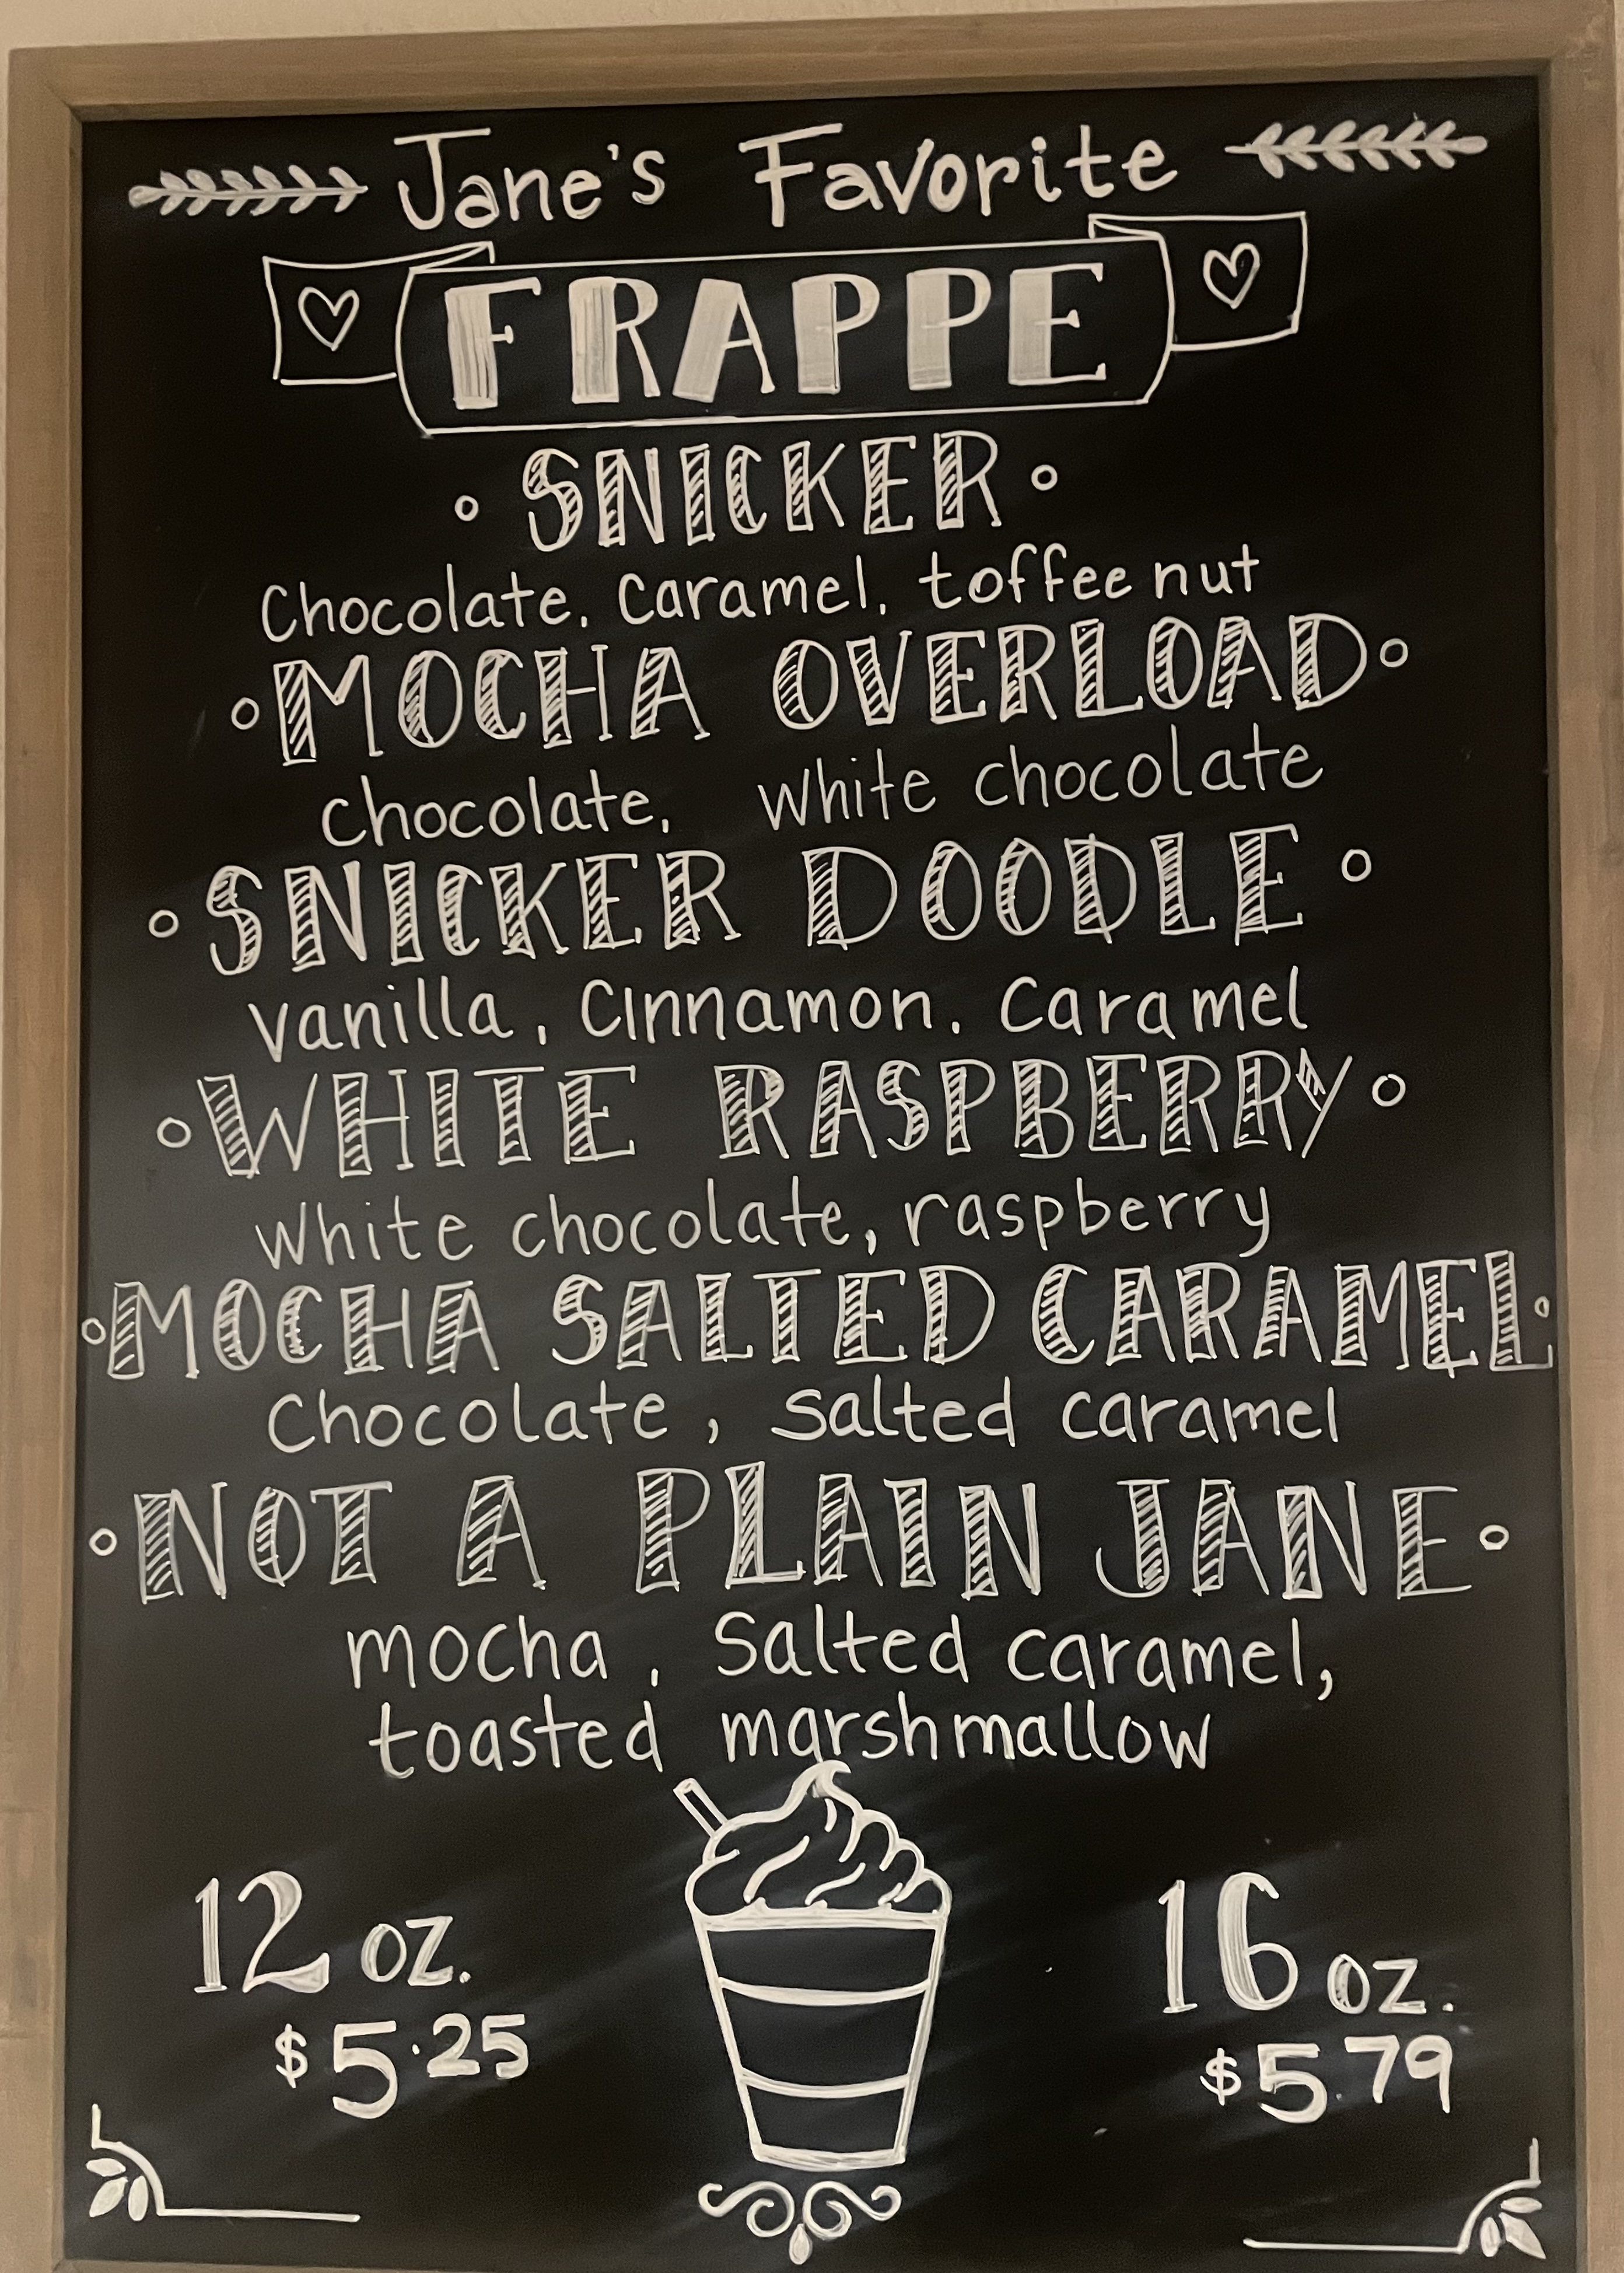 Jane's Favorite
FRAPPE
SNICKER
Chocolate, Caramel, toffee nut
MOCHA OVERLOAD
Chocolate, White chocolate
SNICKER DOODLE
Vanilla, Cinnamon, Caramel
WHITE RASPBERRY
White chocolate, raspberry
MOCHA SALTED CARAMEL
Chocolate, Salted caramel
NOT A PLAIN JANE
mocha, Salted caramel,
toasted marshmallow
12 oz.
$5.25
16 oz.
$5.79